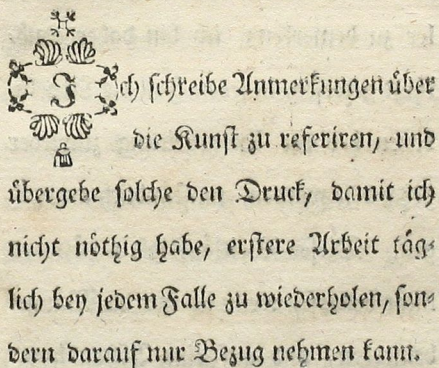 Ich schreibe Anmerkungen über
die Kunst zu referiren, und
übergebe solche den Druck, damit ich
nicht nöthig habe, erstere Arbeit täg-
lich bey jedem Falle zu wiederholen, son-
dern darauf nur Bezug nehmen kann.